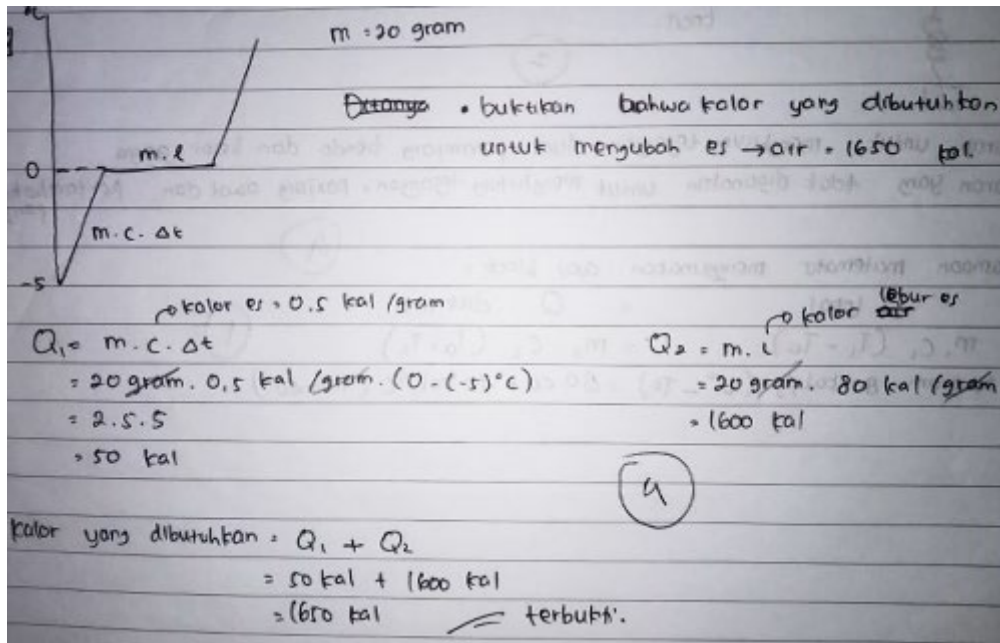 m = 20 gram
Ditanya • buktikan bahwa kalor yang dibutuhkan
untuk mengubah es → air = 1650 kal.
0
m.l
m.c.Δt
-5
kalor es = 0.5 kal /gram
Q₁ = m.c.Δt
= 20 gram. 0,5 kal /gram. (0-(-5)°C)
= 2.5.5
= 50 kal
lebur es
kalor air
Q₂ = m.l
= 20 gram. 80 kal /gram
= 1600 kal
4
kalor yang dibutuhkan = Q₁ + Q₂
= 50 kal + 1600 kal
= 1650 kal terbukti.